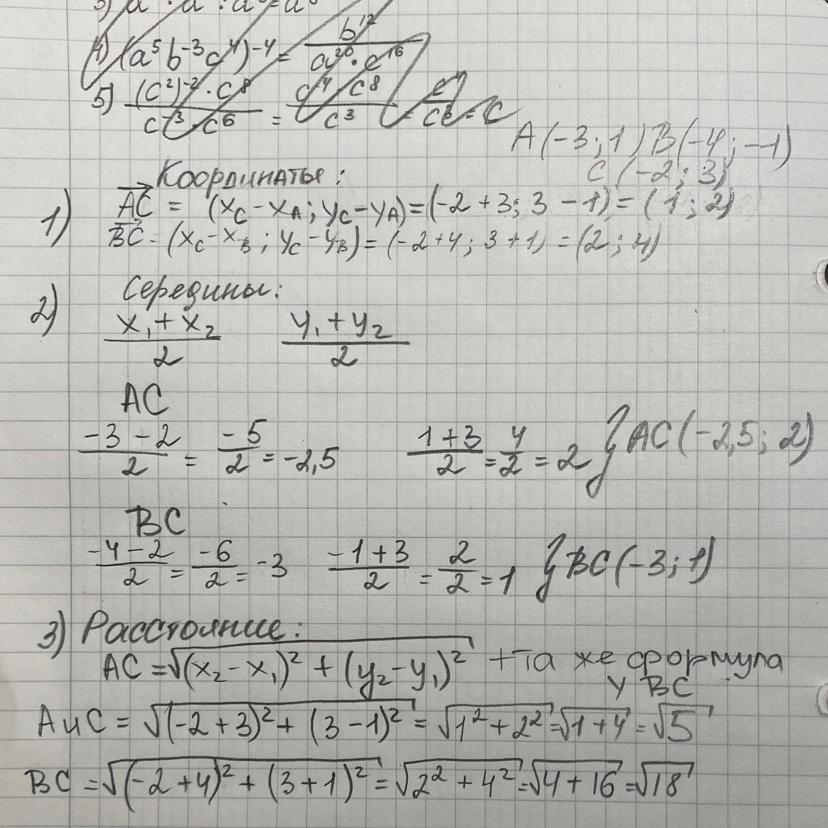 4) (a⁵b⁻³c⁴)⁻⁴ = b¹² / a²⁰ · c¹⁶
5) (c²)⁻² · c⁸ / c⁻³ · c⁶ = c⁴ c⁸ / c³ = = c
A(-3; 1) B(-4; -1)
C(-2; 3)
Координаты:
1) AC = (x_C - x_A; y_C - y_A) = (-2 + 3; 3 - 1) = (1; 2)
BC = (x_C - x_B; y_C - y_B) = (-2 + 4; 3 + 1) = (2; 4)
2) Середины:
x₁ + x₂ / 2 y₁ + y₂ / 2
AC
-3 - 2 / 2 = -5 / 2 = -2,5 1 + 3 / 2 = 4 / 2 = 2 } AC(-2,5; 2)
BC
-4 - 2 / 2 = -6 / 2 = -3 -1 + 3 / 2 = 2 / 2 = 1 } BC(-3; 1)
3) Расстояние:
AC = √(x₂ - x₁)² + (y₂ - y₁)² + та же формула
у BC
А и С = √(-2 + 3)² + (3 - 1)² = √1² + 2² = √1 + 4 = √5
BC = √(-2 + 4)² + (3 + 1)² = √2² + 4² = √4 + 16 = √18